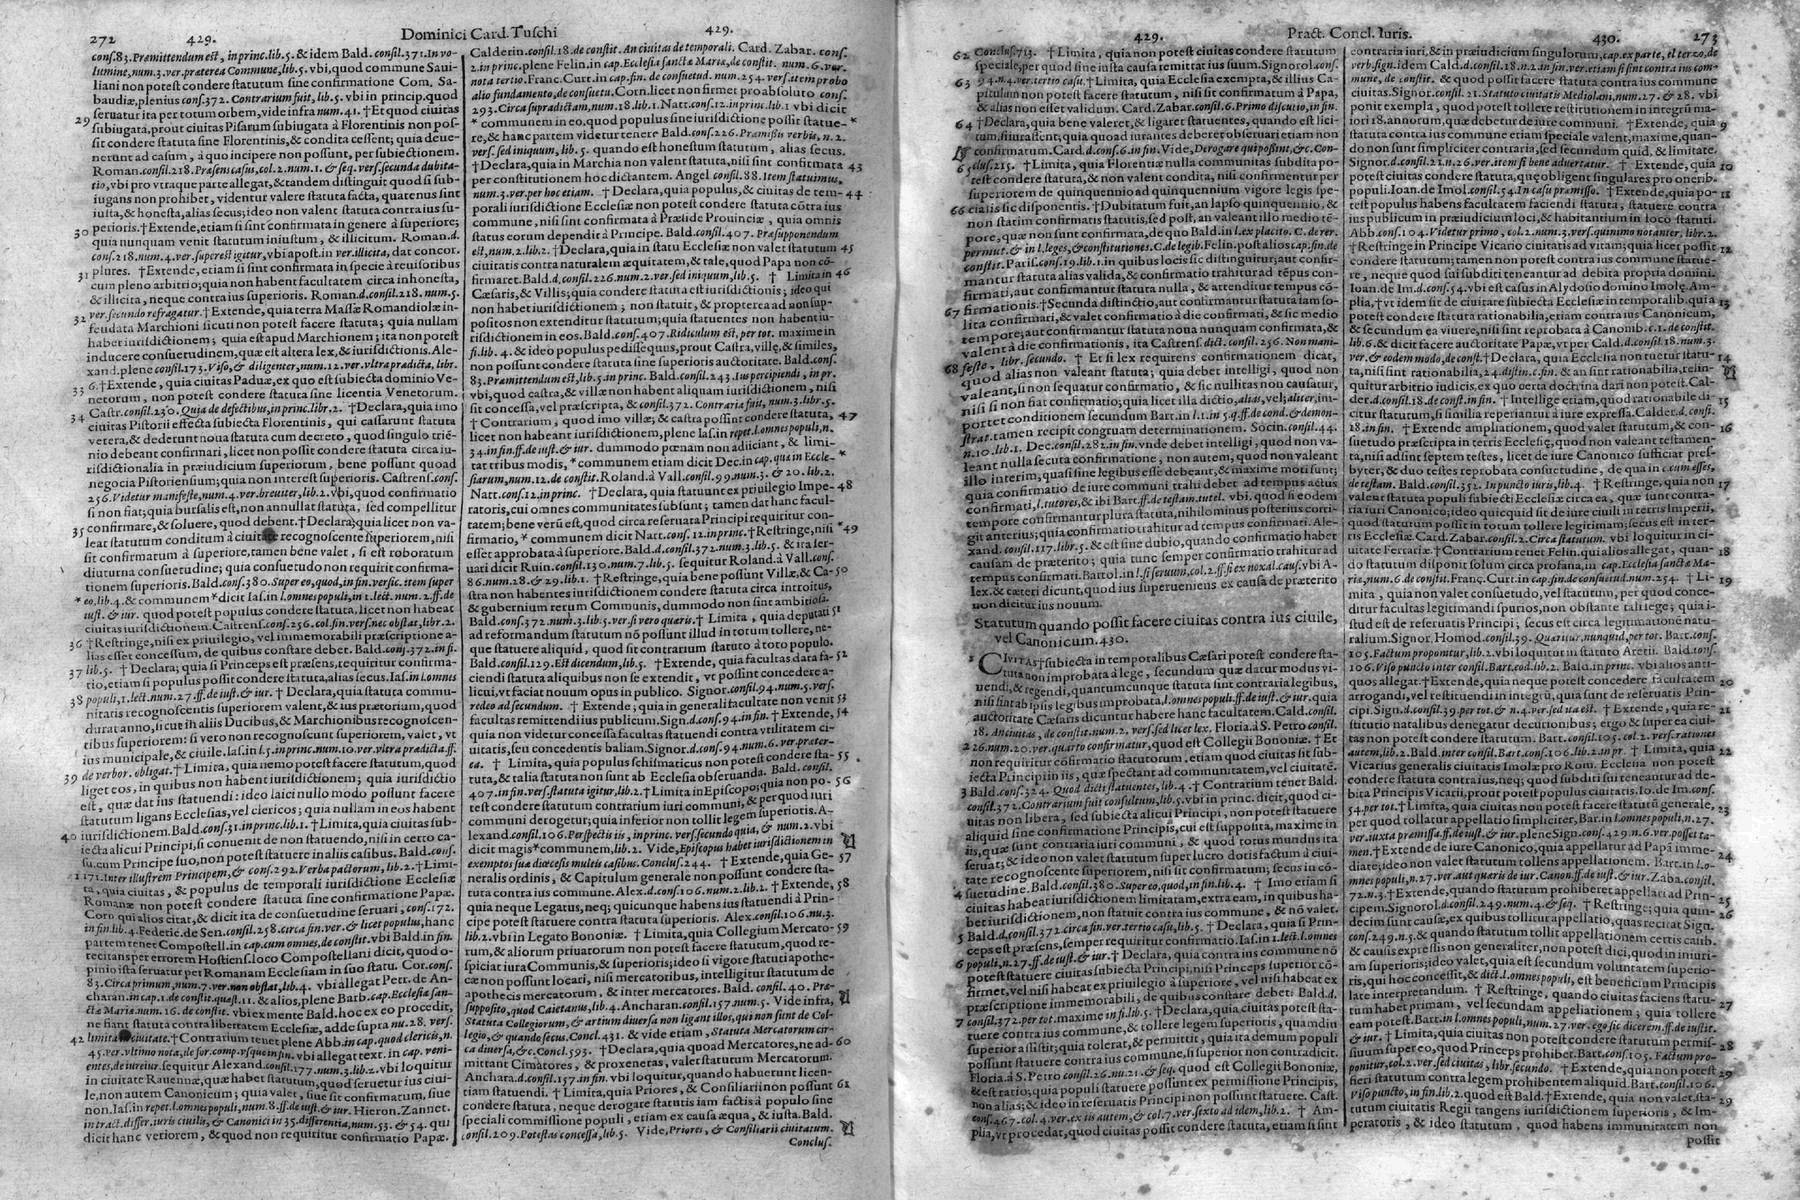 272 429. Dominici Card. Tuschi 429.
cons.83. Præmittendum est, in princ. lib.5. & idem Bald. consil.371. In vo-
lumine, num.3. ver. præterea Commune, lib.5. vbi, quod commune Saui-
liani non potest condere statutum sine confirmatione Com. Sa-
baudiæ, plenius cons.372. Contrarium fuit, lib.5. vbi in princip. quod
seruatur ita per totum orbem, vide infra num.41. †Et quod ciuitas
29 subiugata, prout ciuitas Pisarum subiugata à Florentinis non pos-
sit condere statuta sine Florentinis, & condita cessent; quia deue-
nerunt ad casum, à quo incipere non possunt, per subiectionem.
Roman. consil.218. Præsens casus, col.2. num.1. & seq. vers. secunda dubita-
tio, vbi pro vtraque parte allegat, & tandem distinguit quod si sub-
iugans non prohibet, videntur valere statuta facta, quatenus sint
iusta, & honesta, alias secus; ideo non valent statuta contra ius su-
30 perioris. †Extende, etiam si sint confirmata in genere à superiore;
quia nunquam venit statutum iniustum, & illicitum. Roman. d.
cons.218. num.4. ver. superest igitur, vbi apost. in ver. illicita, dat concor.
31 plures. †Extende, etiam si sint confirmata in specie à reuisoribus
cum pleno arbitrio; quia non habent facultatem circa inhonesta,
& illicita, neque contra ius superioris. Roman. d. consil.218. num.5.
32 ver. secundo refragatur. †Extende, quia terra Massæ Romandiolæ in-
feudata Marchioni sicuti non potest facere statuta; quia nullam
habet iurisdictionem; quia est apud Marchionem; ita non potest
inducere consuetudinem, quæ est altera lex, & iurisdictionis. Ale-
xand. plene consil.173. Viso, & diligenter, num.12. ver. vltra prædicta, libr.
33 6. †Extende, quia ciuitas Paduæ, ex quo est subiecta dominio Ve-
netorum, non potest condere statuta sine licentia Venetorum.
34 Castr. consil.230. Quia de defectibus, in princ. libr.2. †Declara, quia imo
ciuitas Pistorii effecta subiecta Florentinis, qui cassarunt statuta
vetera, & dederunt noua statuta cum decreto, quod singulo trié-
nio debeant confirmari, licet non possit condere statuta circa iu-
risdictionalia in præiudicium superiorum, bene possunt quoad
negocia Pistoriensium; quia non interest superioris. Castrens. cons.
256. Videtur manifeste, num.4. ver. breuiter, lib.2. vbi, quod confirmatio
si non fiat; quia bursalis est, non annullat statuta, sed compellitur
35 confirmare, & soluere, quod debent. †Declara; quia licet non va-
leat statutum conditum à ciuitate recognoscente superiorem, nisi
sit confirmatum à superiore, tamen bene valet, si est roboratum
diuturna consuetudine; quia consuetudo non requirit confirma-
tionem superioris. Bald. cons.380. Super eo, quod, in fin. versic. item super
* eo, lib.4. & communem * dicit Ias. in l. omnes populi, in 1. lect. num.2. ff. de
iust. & iur. quod potest populus condere statuta, licet non habeat
ciuitatis iurisdictionem. Castrens. cons.256. col. fin. vers. nec obstat, libr.2.
36 †Restringe, nisi ex priuilegio, vel immemorabili præscriptione a-
lias esset concessum, de quibus constare debet. Bald. conj.372. in fi.
37 lib.5. †Declara; quia si Princeps est præsens, requiritur confirma-
tio, etiam si populus possit condere statuta, alias secus. Ias. in l. omnes
38 populi, 1. lect. num.27. ff. de iust. & iur. †Declara, quia statuta commu-
nitatis recognoscentis superiorem valent, & ius prætorium, quod
durat anno, sicut in aliis Ducibus, & Marchionibus recognoscen-
tibus superiorem: si vero non recognoscunt superiorem, valet, vt
ius municipale, & ciuile. Ias. in l.5. in princ. num.10. ver. vltra prædicta. ff.
39 de verbor. obligat. †Limita, quia nemo potest facere statutum, quod
liget eos, in quibus non habent iurisdictionem; quia iurisdictio
est, quæ dat ius statuendi: ideo laici nullo modo possunt facere
statutum ligans Ecclesias, vel clericos; quia nullam in eos habent
40 iurisdictionem. Bald. cons.31. in princ. lib.1. †Limita, quia ciuitas sub-
iecta alicui Principi, si conuenit de non statuendo, nisi in certo ca-
su, cum Principe suo, non potest statuere in aliis casibus. Bald. cons.
171. Inter illustrem Principem, & cons.292. Verba pactorum, lib.2. †Limi-
ta, quia ciuitas, & populus de temporali iurisdictione Ecclesiæ
Romanæ non potest condere statuta sine confirmatione Papæ.
Corn. qui alios citat, & dicit ita de consuetudine seruari, cons.172.
in fin. lib.4. Federic. de Sen. consil.258. circa fin. ver. & licet populus, hanc
partem tenet Compostell. in cap. cum omnes, de constit. vbi Bald. in fin.
recitans per errorem Hostiens. loco Compostellani dicit, quod o-
pinio ista seruatur per Romanam Ecclesiam in suo statu. Cor. cons.
85. Circa primum, num.7. ver. non obstat, lib.4. vbi allegat Petr. de An-
charan. in cap.1. de constit. quæst.11. & alios, plene Barb. cap. Ecclesia san-
cta Maria, num.16. de constit. vbi ex mente Bald. hoc ex eo procedit,
ne fiant statuta contra libertatem Ecclesiæ, adde supra nu.28. vers.
42 limita ciuitate. †Contrarium tenet plene Abb. in cap. quod clericis, n.
45. ver. vltimo nota, de for. comp. vsque in fin. vbi allegat text. in cap. veni-
entes, de iureiur. sequitur Alexand. consil.177. num.3. lib.2. vbi loquitur
in ciuitate Rauennæ, quæ habet statutum, quod seruetur ius ciui-
le, non autem Canonicum; quia valet, siue sit confirmatum, siue
non. Ias. in repet. l. omnes populi, num.8. ff. de iust. & iur. Hieron. Zannet.
in tract. differ. iuris ciuilis, & Canonici in 35. differentia, num.53. & 54. qui
dicit hanc veriorem, & quod non requiritur confirmatio Papæ.
Calderin. consil.18. de constit. An ciuitas de temporali. Card. Zabar. cons.
2. in princ. plene Felin. in cap. Ecclesia sanctæ Mariæ, de constit. num.6. ver.
nota tertio. Franc. Curt. in cap. fin. de consuetud. num.254. vers. item probo
alio fundamento, de consuetu. Corn. licet non firmet pro absoluto cons.
293. Circa supradictam, num.18. lib.1. Natt. cons.12. in princ. lib.1. vbi dicit
* communem in eo, quod populus sine iurisdictione possit statue- *
re, & hanc partem videtur tenere Bald. cons.226. Præmissis verbis, n.2.
vers. sed iniquum, lib.5. quando est honestum statutum, alias secus.
†Declara, quia in Marchia non valent statuta, nisi sint confirmata 43
per constitutionem hoc dictantem. Angel. consil.88. Item statuimus,
num.3. ver. per hoc etiam. †Declara, quia populus, & ciuitas de tem- 44
porali iurisdictione Ecclesiæ non potest condere statuta cõtra ius
commune, nisi sint confirmata à Præside Prouinciæ, quia omnis
status eorum dependit à Principe. Bald. cons.407. Præsupponendum
est, num.2. lib.2. †Declara, quia in statu Ecclesiæ non valet statutum 45
ciuitatis contra naturalem æquitatem, & tale, quod Papa non cõ-
firmaret. Bald. d. cons.226. num.2. ver. sed iniquum, lib.5. †Limita in 46
Cæsaris, & Villis; quia condere statuta est iurisdictionis; ideo qui
non habet iurisdictionem; non statuit, & propterea ad non sup-
positos non extenditur statutum; quia statuentes non habent iu-
risdictionem in eos. Bald. cons.407. Ridiculum est, per tot. maxime in
fi. lib.4. & ideo populus pedissequus, prout Castra, villę, & similes,
non possunt condere statuta sine superioris auctoritate. Bald. cons.
83. Præmittendum est, lib.5. in princ. Bald. cons.243. Ius percipiendi, in pr.
vbi, quod castra, & villæ non habent aliquam iurisdictionem, nisi
sit concessa, vel præscripta, & cons.372. Contraria fuit, num.3. libr.5.
†Contrarium, quod imo villæ; & castra possint condere statuta, 47
licet non habeant iurisdictionem, plene Ias. in repet. l. omnes populi, n.
34. in fin. ff. de iust. & iur. dummodo pœnam non adiiciant, & limi-
tat tribus modis, * communem etiam dicit Dec. in cap. quæ in Eccle- *
siarum, num.12. de constit. Roland. à Vall. cons.99. num.3. & 20. lib.2.
Natt. cons.12. in princ. †Declara, quia statuunt ex priuilegio Impe- 48
ratoris, cui omnes communitates subsunt; tamen dat hanc facul-
tatem; bene verũ est, quod circa reseruata Principi requiritur con-
firmatio, * communem dicit Natt. cons.12. in princ. †Restringe, nisi * 49
esset approbata à superiore. Bald. d. cons.372. num.3. lib.5. & ita ser-
uati dicit Ruin. consil.130. num.7. lib.5. sequitur Roland. à Vall. cons.
86. num.28. & 29. lib.1. †Restringe, quia bene possunt Villæ, & Ca- 50
stra non habentes iurisdictionem condere statuta circa introitus,
& gubernium rerum Communis, dummodo non sint ambitiosa.
Bald. cons.372. num.3. lib.5. ver. si vero quæris. †Limita, quia deputati 51
ad reformandum statutum nõ possunt illud in totum tollere, ne-
que statuere aliquid, quod sit contrarium statuto à toto populo.
Bald. consil.129. Est dicendum, lib.5. †Extende, quia facultas data fa- 52
ciendi statuta aliquibus non se extendit, vt possint concedere a-
licui, vt faciat nouum opus in publico. Signor. consil.94. num.5. vers.
redeo ad secundum. †Extende; quia in generali facultate non venit 53
facultas remittendi ius publicum. Sign. d. cons.94. in fin. †Extende, 54
quia non videtur concessa facultas statuendi contra vtilitatem ci-
uitatis, seu concedentis baliam. Signor. d. cons.94. num.6. ver. præter-
ea. †Limita, quia populus schismaticus non potest condere sta- 55
tuta, & talia statuta non sunt ab Ecclesia obseruanda. Bald. consil.
407. in fin. vers. statuta igitur, lib.2. †Limita in Episcopo; quia non po- 56
test condere statutum contrarium iuri communi, & per quod iuri
communi derogetur; quia inferior non tollit legem superioris. A-
lexand. consil.106. Perspectis iis, in princ. vers. secundo quia, & num.2. vbi
dicit magis * communem, lib.2. Vide, Episcopus habet iurisdictionem in
exemptos suæ diœcesis multis casibus. Conclus.244. †Extende, quia Ge- 57
neralis ordinis, & Capitulum generale non possunt condere sta-
tuta contra ius commune. Alex. d. cons.106. num.2. lib.2. †Extende, 58
quia neque Legatus, neq; quicunque habens ius statuendi à Prin-
cipe potest statuere contra statuta superioris. Alex. cons.106. nu.3.
lib.2. vbi in Legato Bononiæ. †Limita, quia Collegium Mercato- 59
rum, & aliorum priuatorum non potest facere statutum, quod re-
spiciat iura Communis, & superioris; ideo si vigore statuti apothe-
cæ non possunt locari, nisi mercatoribus, intelligitur statutum de
apothecis mercatorum, & inter mercatores. Bald. consil.40. Præ-
supposito, quod Caietanus, lib.4. Ancharan. consil.157. num.5. Vide infra,
Statuta Collegiorum, & artium diuersa non ligant illos, qui non sunt de Col-
legio, & quando secus. Concl.431. & vide etiam, Statuta Mercatorum cir-
ca diuersa, &c. Concl.593. †Declara, quia quod Mercatores, ne ad- 60
mittant Cimatores, & proxenetas, valet statutum Mercatorum.
Anchara. d. consil.157. in fin. vbi loquitur, quando habuerunt licen-
tiam statuendi. †Limita, quia Priores, & Consiliarii non possunt 61
condere statuta, neque derogare statutis iam factis à populo sine
speciali commissione populi, etiam ex causa æqua, & iusta. Bald.
consil.209. Potestas concessa, lib.5. Vide, Priores, & Consiliarii ciuitatum.
Conclus.
429. Pract. Concl. Iuris. 430. 273
62 Conclus.713. †Limita, quia non potest ciuitas condere statutum
speciale, per quod sine iusta causa remittat ius suum. Signorol. cons.
63 94. n.4. ver. tertio casu. †Limita, quia Ecclesia exempta, & illius Ca-
pitulum non potest facere statutum, nisi sit confirmatum à Papa,
& alias non esset validum. Card. Zabar. consil.6. Primo discutio, in fin.
64 †Declara, quia bene valeret, & ligaret statuentes, quando est lici-
tum, si iurassent, quia quoad iurantes deberet obseruari etiam non
confirmatum. Card. d. cons.6. in fin. Vide, Derogare qui possint, &c. Con-
65 clus.215. †Limita, quia Florentiæ nulla communitas subdita po-
test condere statuta, & non valent condita, nisi confirmentur per
superiorem de quinquennio ad quinquennium vigore legis spe-
66 cialis sic disponentis. †Dubitatum fuit, an lapso quinquennio, &
non statim confirmatis statutis, sed post, an valeant illo medio tẽ-
pore, quæ non sunt confirmata, de quo Bald. in l. ex placito. C. de rer.
permut. & in l. leges, & constitutiones. C. de legib. Felin. post alios cap. fin. de
constit. Paris. cons.19. lib.1. in quibus locis sic distinguitur; aut confir-
mantur statuta alias valida, & confirmatio trahitur ad tẽpus con-
firmati, aut confirmantur statuta nulla, & attenditur tempus cõ-
67 firmationis. †Secunda distinctio, aut confirmantur statuta iam so-
lita confirmari, & valet confirmatio à die confirmati, & sic medio
tempore; aut confirmantur statuta noua nunquam confirmata, &
valent à die confirmationis, ita Castrens. dict. consil.256. Non mani-
68 feste, libr. secundo. †Et si lex requirens confirmationem dicat,
quod alias non valeant statuta; quia debet intelligi, quod non
valeant, si non sequatur confirmatio, & sic nullitas non causatur,
nisi si non fiat confirmatio; quia licet illa dictio, alias, vel; aliter, im-
portet conditionem secundum Bart. in l.1. in 5. q. ff. de cond. & demon-
strat. tamen recipit congruam determinationem. Socin. consil.44.
n.10. lib.1. Dec. consil.282. in fin. vnde debet intelligi, quod non va-
leant nulla secuta confirmatione, non autem, quod non valeant
illo interim, quasi sine legibus esse debeant, & maxime moti sunt;
quia confirmatio de iure communi trahi debet ad tempus actus
confirmati, l. tutores, & ibi Bart. ff. de testam. tutel. vbi. quod si eodem
tempore confirmantur plura statuta, nihilominus posterius corri-
git anterius; quia confirmatio trahitur ad tempus confirmati. Ale-
xand. consil.117. libr.5. & est sine dubio, quando confirmatio habet
causam de præterito; quia tunc semper confirmatio trahitur ad
tempus confirmati. Bartol. in l. si seruum, col.2. ff. si ex noxal. caus. vbi A-
lex. & cæteri dicunt, quod ius superueniens ex causa de præterito
non dicitur ius nouum.
Statutum quando possit facere ciuitas contra ius ciuile,
vel Canonicum. 430.
1 CIVITAS †subiecta in temporalibus Cæsari potest condere sta-
tuta non improbata à lege, secundum quæ datur modus vi-
uendi, & regendi, quantumcunque statuta sint contraria legibus,
nisi sint ab ipsis legibus improbata, l. omnes populi. ff. de iust. & iur. quia
auctoritate Cæsaris dicuntur habere hanc facultatem. Cald. consil.
18. An ciuitas, de constit. num.2. vers. sed licet lex. Floria. à S. Petro consil.
2 26. num.20. ver. quarto confirmatur, quod est Collegii Bononiæ. †Et
non requiritur confirmatio statutorum, etiam quod ciuitas sit sub-
iecta Principi in iis, quæ spectant ad communitatem, vel ciuitatẽ.
3 Bald. cons.324. Quod dicti statuentes, lib.4. †Contrarium tenet Bald.
consil.372. Contrarium fuit consultum, lib.5. vbi in princ. dicit, quod ci-
uitas non libera, sed subiecta alicui Principi, non potest statuere
aliquid sine confirmatione Principis, cui est supposita, maxime in
iis, quæ sunt contraria iuri communi, & quod totus mundus ita
seruat; & ideo non valet statutum super lucro dotis factum à ciui-
tate recognoscente superiorem, nisi sit confirmatum; secus in cõ-
4 suetudine. Bald. cons.380. Super eo, quod, in fin. lib.4. †Imo etiam si
ciuitas habeat iurisdictionem limitatam, extra eam, in quibus ha-
bet iurisdictionem, non statuit contra ius commune, & nõ valet.
5 Bald. d. cons.372. circa fin. ver. tertio casu, lib.5. †Declara, quia si Prin-
ceps est præsens, semper requiritur confirmatio. Ias. in 1. lect. l. omnes
6 populi, n.27. ff. de iust. & iur. †Declara, quia contra ius commune nõ
potest statuere ciuitas subiecta Principi, nisi Princeps superior cõ-
firmet, vel nisi habeat ex priuilegio à superiore, vel nisi habeat ex
præscriptione immemorabili, de quibus constare debet. Bald. d.
7 consil.372. per tot. maxime in fi. lib.5. †Declara, quia ciuitas potest sta-
tuere contra ius commune, & tollere legem superioris, quamdiu
superior assistit; quia tolerat, & permittit, quia ita demum populi
possunt statuere contra ius commune, si superior non contradicit.
Floria. à S. Petro consil.26. nu.21. & seq. quod est Collegii Bononiæ,
& est ratio; quia populi statuere possunt ex permissione Principis,
non alias; & ideo in reseruatis Principi non possunt statuere. Cast.
cons.467. col.4. ver. ex iis autem, & col.7. ver. sexto ad idem, lib.2. †Am-
plia, vt procedat, quod ciuitas possit condere statuta, etiam si sint
contraria iuri, & in præiudicium singulorum, cap. ex parte, el terzo, de
verb. sign. idem Cald. d. consil.18. n.2. in fin. ver. etiam si sint contra ius com-
mune, de constit. & quod possit facere statuta contra ius commune
ciuitas. Signor. consil.21. Statuto ciuitatis Mediolani, num.27. & 28. vbi
ponit exempla, quod potest tollere restitutionem in integrũ ma-
iori 18. annorum, quæ debetur de iure communi. †Extende, quia 9
statuta contra ius commune etiam speciale valent, maxime, quan-
do non sunt simpliciter contraria, sed secundum quid, & limitate.
Signor. d. consil.21. n.26. ver. item si bene aduertatur. †Extende, quia 10
potest ciuitas condere statuta, quę obligent singulares pro oneribus
populi. Ioan. de Imol. consil.54. In casu præmisso. †Extende, quia po- 11
test populus habens facultatem faciendi statuta, statuere contra
ius publicum in præiudicium loci, & habitantium in loco statuti.
Abb. cons.104. Videtur primo, col.2. num.3. vers. quinimo notanter, libr.2.
†Restringe in Principe Vicario ciuitatis ad vitam; quia licet possit 12
condere statutum; tamen non potest contra ius commune statue-
re, neque quod sui subditi teneantur ad debita propria domini.
Ioan. de Im. d. cons.54. vbi est casus in Alydosio domino Imolę. Am-
plia, †vt idem sit de ciuitate subiecta Ecclesiæ in temporalib. quia 13
potest condere statuta rationabilia, etiam contra ius Canonicum,
& secundum ea viuere, nisi sint reprobata à Canonib. c.1. de constit.
lib.6. & dicit facere auctoritate Papæ, vt per Cald. d. consil.18. num.3.
ver. & eodem modo, de const. †Declara, quia Ecclesia non tuetur statu- 14
ta, nisi sint rationabilia, 24. distin. c. fin. & an sint rationabilia, relin-
quitur arbitrio iudicis, ex quo certa doctrina dari non potest. Cal-
der. d. consil.18. de const. in fin. †Intellige etiam, quod rationabile di- 15
citur statutum, si similia reperiantur à iure expressa. Calder. d. consi.
18. in fin. †Extende ampliationem, quod valet statutum, & con- 16
suetudo præscripta in terris Ecclesię, quod non valeant testamen-
ta, nisi adsint septem testes, licet de iure Canonico sufficiat pres-
byter, & duo testes reprobata consuetudine, de qua in c. cum esses,
de testam. Bald. consil.352. In puncto iuris, lib.4. †Restringe, quia non 17
valeant statuta populi subiecti Ecclesiæ circa ea, quæ sunt contra-
ria iuri Canonico; ideo quicquid sit de iure ciuili in terris Imperii,
quod statutum possit in totum tollere legitimam; secus est in ter-
ris Ecclesiæ. Card. Zabar. consil.2. Circa statutum. vbi loquitur in ci-
uitate Ferrariæ. †Contrarium tenet Felin. qui alios allegat, quan- 18
do statutum disponit solum circa profana, in cap. Ecclesia sanctæ Ma-
riæ, num.6. de constit. Franç. Curt. in cap. fin. de consuetud. num.254. †Li- 19
mita, quia non valet consuetudo, vel statutum, per quod conce-
ditur facultas legitimandi spurios, non obstante tali lege; quia i-
stud est de reseruatis Principi; secus est circa legitimatione natu-
ralium. Signor. Homod. consil.39. Quæritur nunquid, per tot. Bart. cons.
105. Factum proponitur, lib.2. vbi loquitur in statuto Aretii. Bald. cons.
106. Viso puncto inter consil. Bart. eod. lib.2. Bald. in princ. vbi alios anti-
quos allegat. †Extende, quia neque potest concedere facultatem 20
arrogandi, vel restituendi in integrũ, quia sunt de reseruatis Prin-
cipi. Sign. d. consil.39. per tot. & n.4. ver. sed ita est. †Extende, quia re- 21
stitutio natalibus denegatur decutionibus; ergo & super ea ciui-
tas non potest condere statutum. Bart. consil.105. col.2. vers. rationes
autem, lib.2. Bald. inter consil. Bart. cons.106. lib.2. in pr. †Limita, quia 22
Vicarius generalis ciuitatis Imolæ pro Rom. Ecclesia non potest
condere statuta contra ius, neq; quod subditi sui teneantur ad de-
bita Principis Vicarii, prout potest ipse populus. Io. de Im. cons.
54. per tot. †Limita, quia ciuitas non potest facere statutum generale, 23
per quod tollatur appellatio simpliciter, Bar. in l. omnes populi, n.27.
ver. iuxta præmissa. ff. de iust. & iur. plene Sign. cons.429. n.6. ver. posset ta-
men. †Extende de iure Canonico, quia appellatur ad Papã imme- 24
diate; ideo non valet statutum tollens appellationem. Bart. in l. o-
mnes populi, n.27. ver. aut quæris de iur. Canon. ff. de iust. & iur. Zaba. consil.
72. n.3. †Extende, quando statutum prohiberet appellari ad Prin- 25
cipem. Signorol. d. cons.249. num.4. & seq. †Restringe; quia quin- 26
decim sunt causæ, ex quibus tollitur appellatio, quas recitat Sign.
cons.249. n.5. & quando statutum tollit appellationem certis casib.
& causis expressis non generaliter, non potest dici, quod in iniuri-
am superioris; quia est secundum voluntatem superio-
ris, qui hoc concessit, & dict. l. omnes populi, est beneficium Principis
late interpretandum. †Restringe, quando ciuitas faciens statu- 27
tum habet primam, vel secundam appellationem, quia vult tollere
eam potest. Bart. in l. omnes populi, num.27. ver. ego sic dicerem. ff. de iustit.
& iur. †Limita, quia ciuitas non potest condere statutum permis- 28
siuum super eo, quod Princeps prohibet. Bart. cons.105. Factum pro-
ponitur, col.2. ver. sed ciuitas, libr. secundo. †Extende, quia non potest
fieri statutum contra legem prohibentem aliquid. Bart. consil.106.
Viso puncto, in fin. lib.2. quod est Bald. †Extende, quia non valet sta- 29
tutum ciuitatis Regii tangens iurisdictionem superioris, & Im-
peratoris, & ideo statutum, quod habens immunitatem non
possit